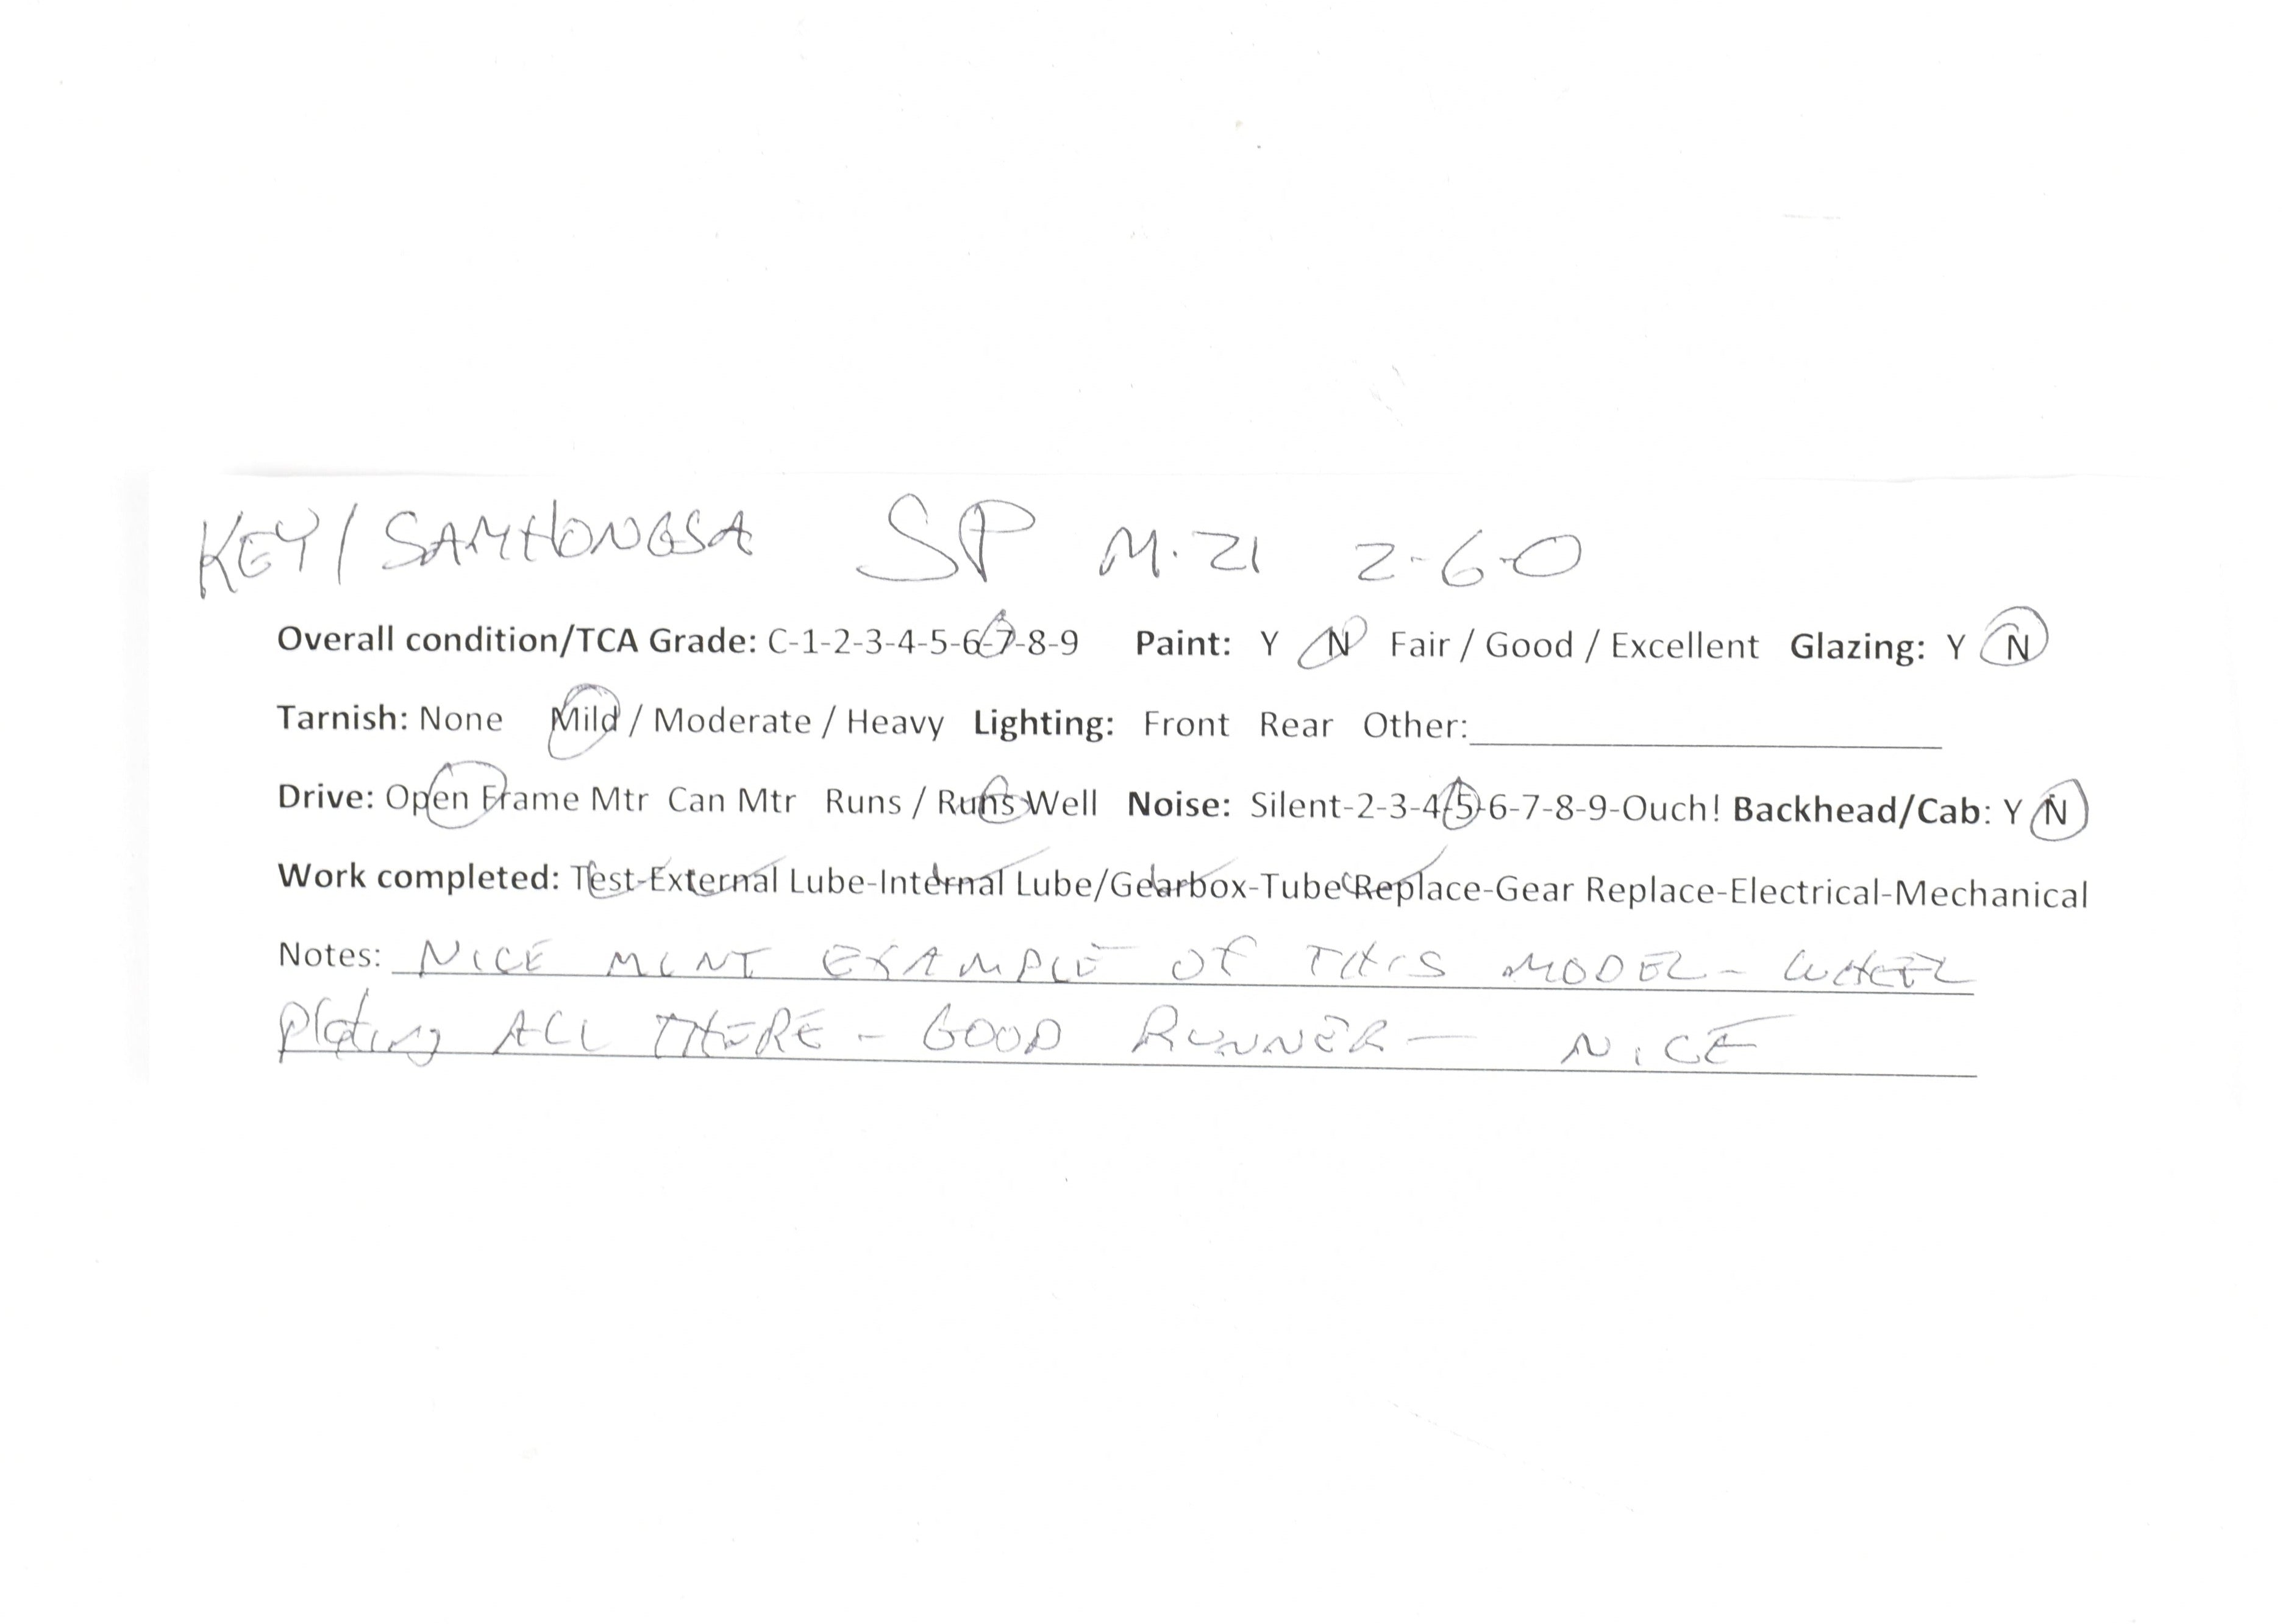 KEY/SAMHONGSA SP M-21 2-6-0
Overall condition/TCA Grade: C-1-2-3-4-5-6-7-8-9 Paint: Y N Fair / Good / Excellent Glazing: Y N
Tarnish: None Mild / Moderate / Heavy Lighting: Front Rear Other:
Drive: Open Frame Mtr Can Mtr Runs / Runs Well Noise: Silent-2-3-4-5-6-7-8-9-Ouch! Backhead/Cab: Y N
Work completed: Test-External Lube-Internal Lube/Gearbox-Tube Replace-Gear Replace-Electrical-Mechanical
Notes: NICE MINT EXAMPLE OF THIS MODEL - WHEEL
Plating ALL THERE - GOOD RUNNER - NICE